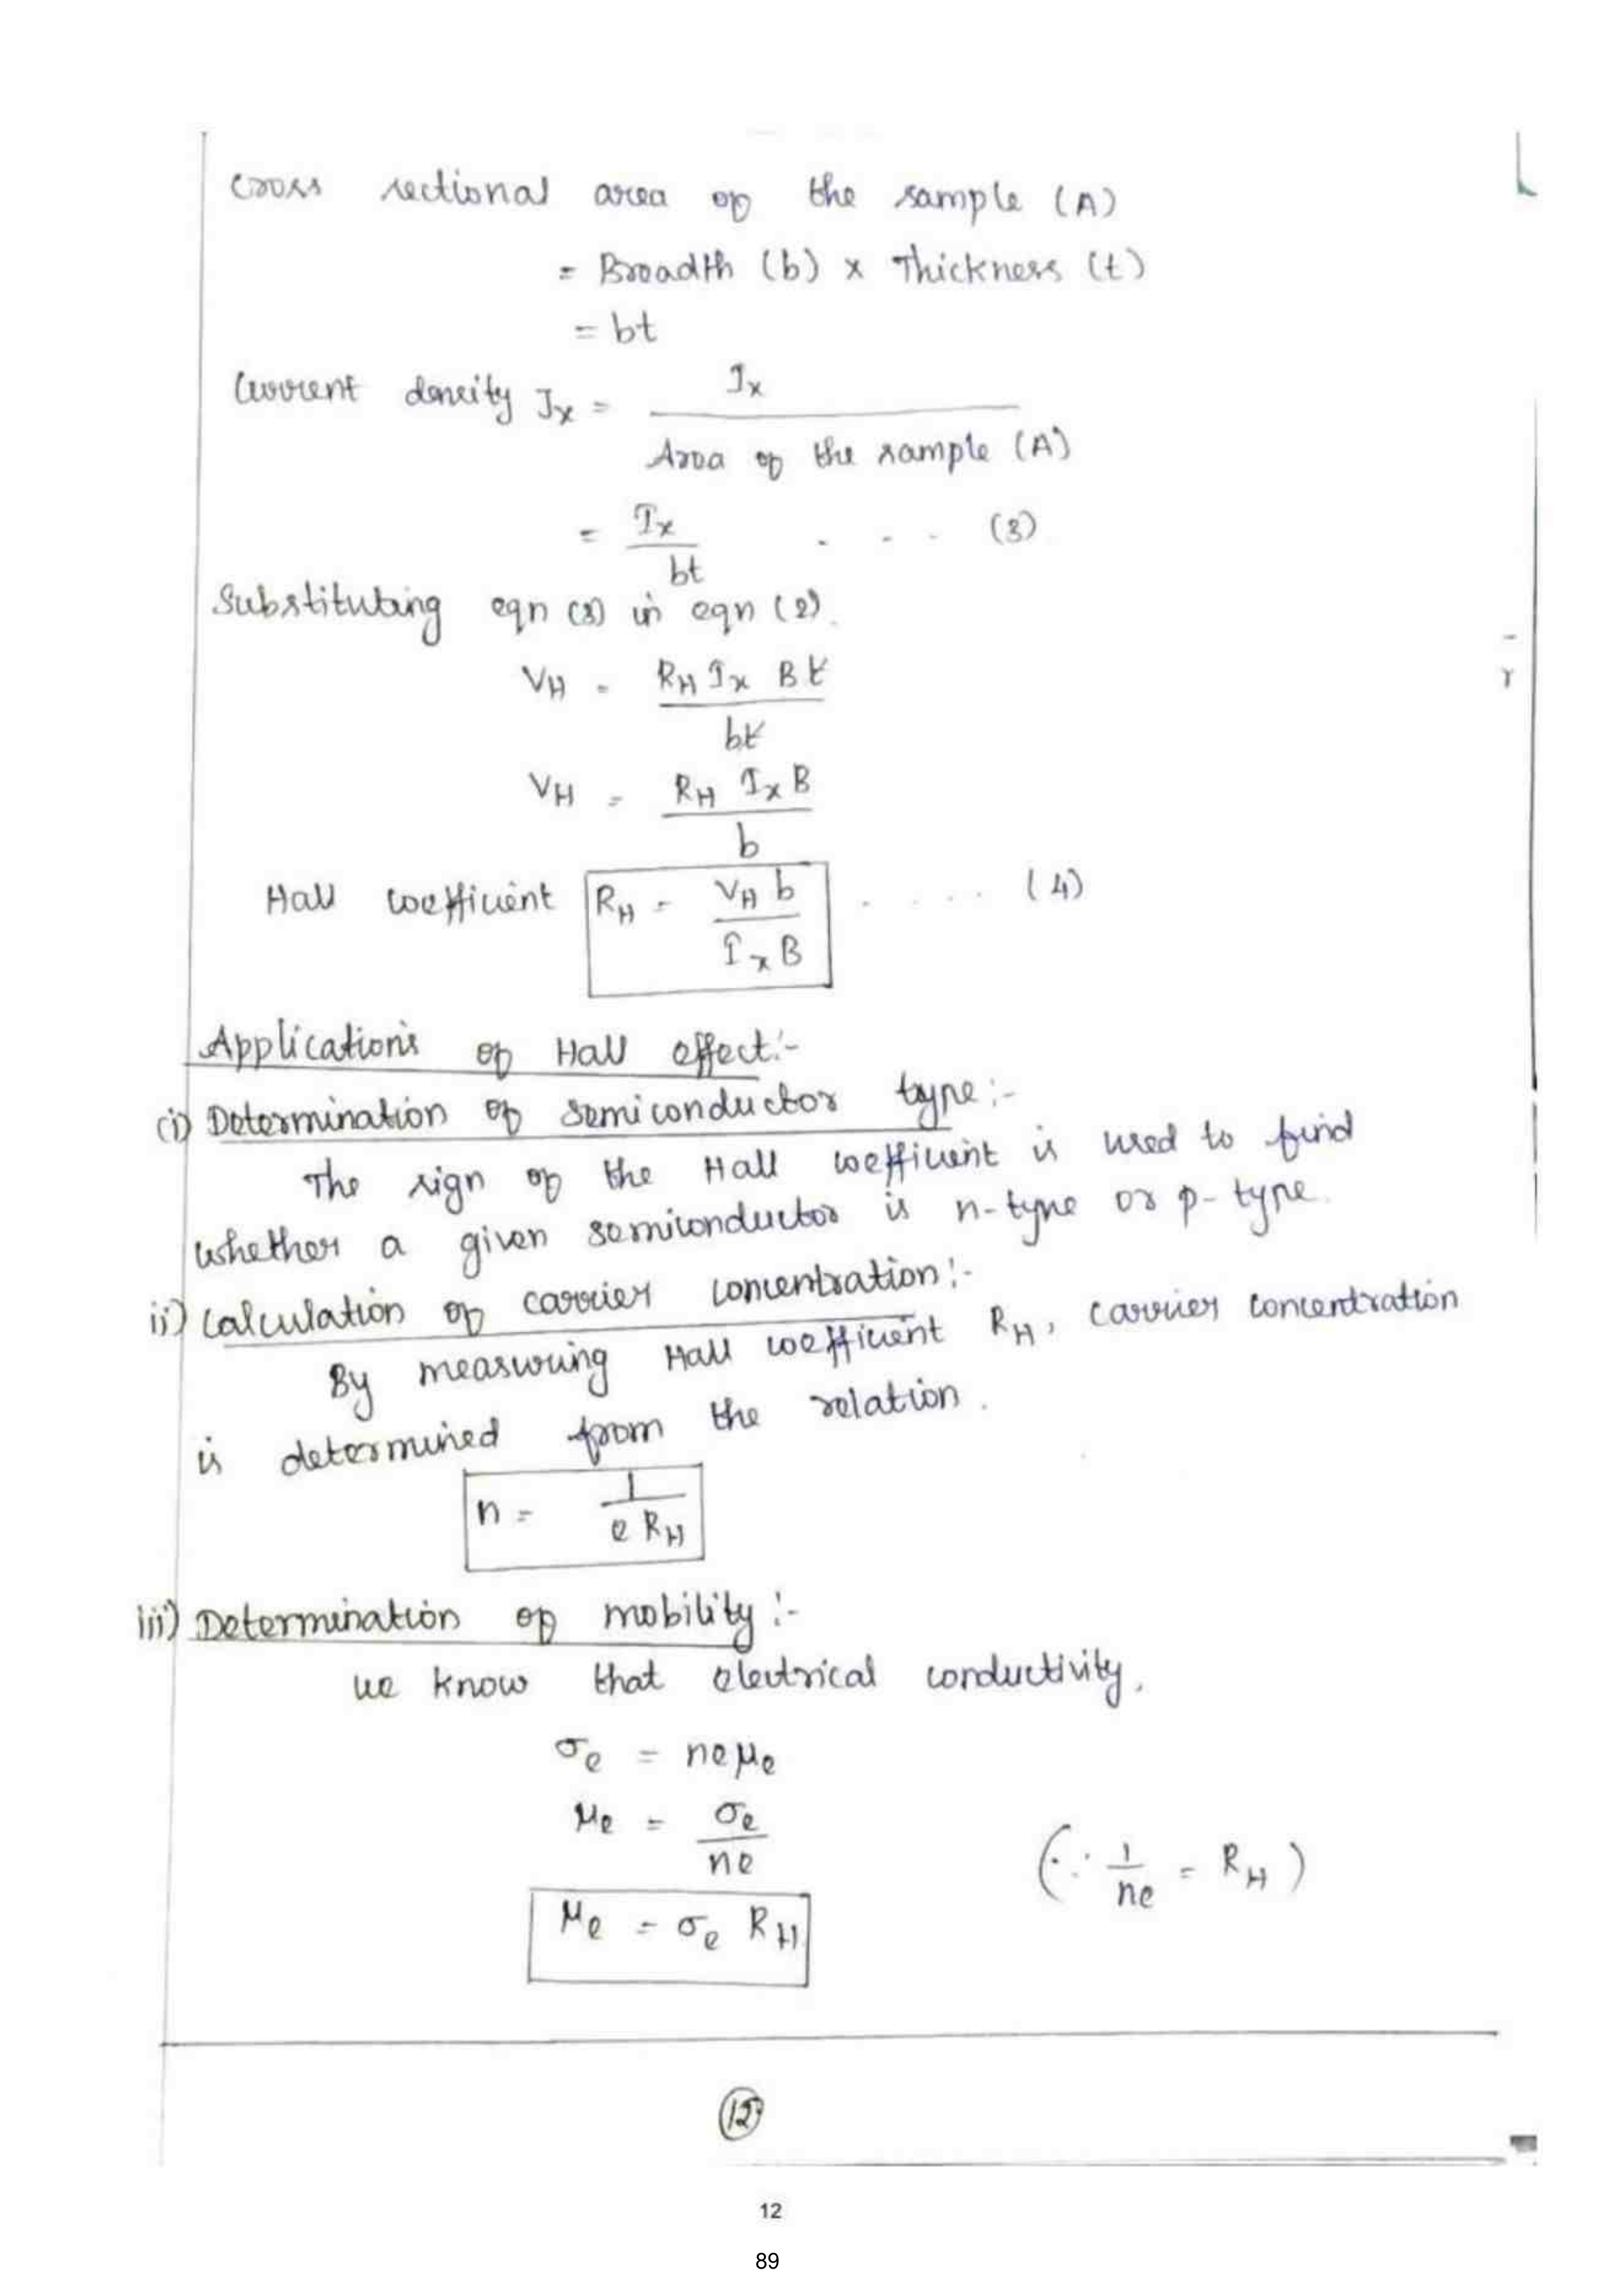 Cross sectional area of the sample (A)
= Breadth (b) x Thickness (t)
= bt
Current density Jx = Ix / Area of the sample (A)
= Ix / bt . . . (3)
Substituting eqn (3) in eqn (2).
VH = RH Ix B t / bt
VH = RH Ix B / b
Hall coefficient RH = VH b / Ix B . . . . . (4)
Applications of Hall effect:-
(i) Determination of semiconductor type:-
The sign of the Hall coefficient is used to find
whether a given semiconductor is n-type or p-type.
ii) Calculation of carrier concentration:-
By measuring Hall coefficient RH, carrier concentration
is determined from the relation.
n = 1 / e RH
iii) Determination of mobility:-
we know that electrical conductivity,
σe = neμe
μe = σe / ne (∵ 1 / ne = RH)
μe = σe RH
12
12
89